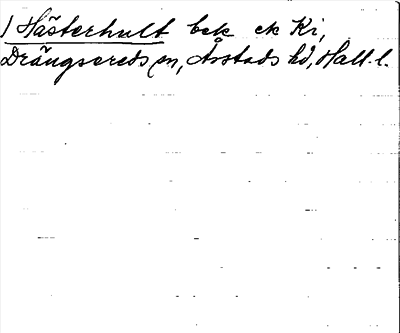 1 Hästerhult bek ek Ki,
Drängsereds sn, Årstads hd, Hall. l.